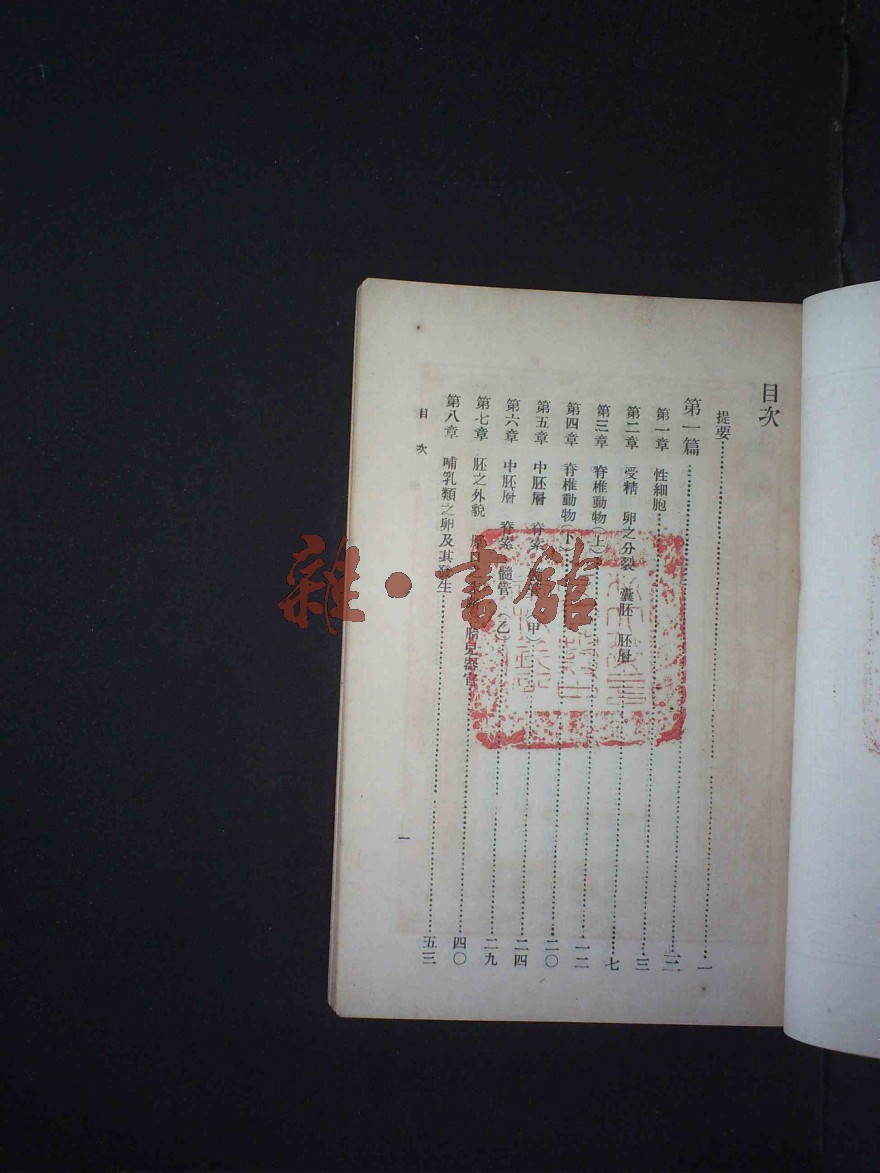 目次
提要……一
第一篇……
第一章 性細胞……三
第二章 受精 卵之分裂 囊胚 胚層……七
第三章 脊椎動物(上)……一二
第四章 脊椎動物(下)……二〇
第五章 中胚層 脊索 (甲)……二四
第六章 中胚層 脊索 髓管(乙)……二九
第七章 胚之外貌 胎兒器官……四〇
第八章 哺乳類之卵及其發生……五三
目次
一
雜·書館